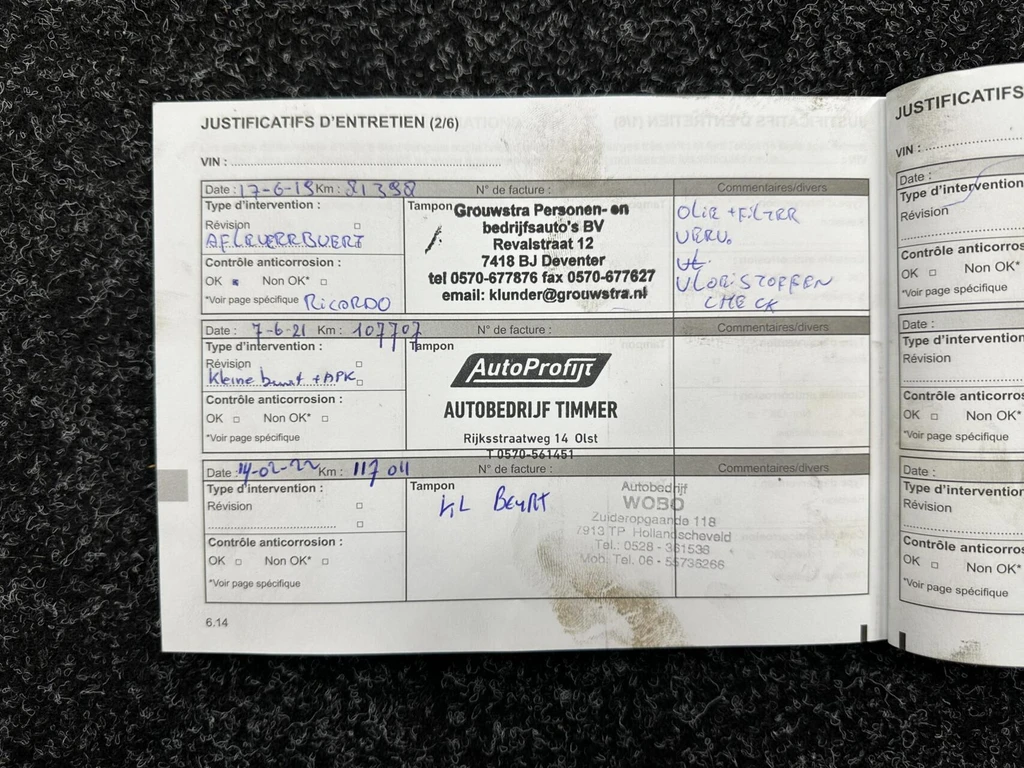 JUSTIFICATIFS D'ENTRETIEN (2/6)
VIN :
Date : 17-6-19 Km : 81398 N° de facture : Commentaires/divers
Type d'intervention :
Révision
AFLEVERBUERT
Contrôle anticorrosion :
OK Non OK*
*Voir page spécifique RICORDO
Tampon
Grouwstra Personen- en
bedrijfsauto's BV
Revalstraat 12
7418 BJ Deventer
tel 0570-677876 fax 0570-677627
email: klunder@grouwstra.nl
OLIE + FILTER
VERV.
VLOEISTOFFEN
CHECK
Date : 7-6-21 Km : 107707 N° de facture : Commentaires/divers
Type d'intervention :
Révision
kleine beurt + APK
Contrôle anticorrosion :
OK Non OK*
*Voir page spécifique
Tampon
AutoProfijt
AUTOBEDRIJF TIMMER
Rijksstraatweg 14 Olst
T 0570-561451
Date : 14-02-22 Km : 117 011 N° de facture : Commentaires/divers
Type d'intervention :
Révision
Contrôle anticorrosion :
OK Non OK*
*Voir page spécifique
Tampon
KL BEURT
Autobedrijf
WOBO
Zuideropgaande 118
7913 TP Hollandscheveld
Tel.: 0528 - 361536
Mob. Tel. 06 - 55736266
6.14
JUSTIFICATIFS
VIN :
Date :
Type d'intervention
Révision
Contrôle anticorros
OK Non OK*
*Voir page spécifique
Date :
Type d'intervention
Révision
Contrôle anticorros
OK Non OK*
*Voir page spécifique
Date :
Type d'intervention
Révision
Contrôle anticorros
OK Non OK*
*Voir page spécifique